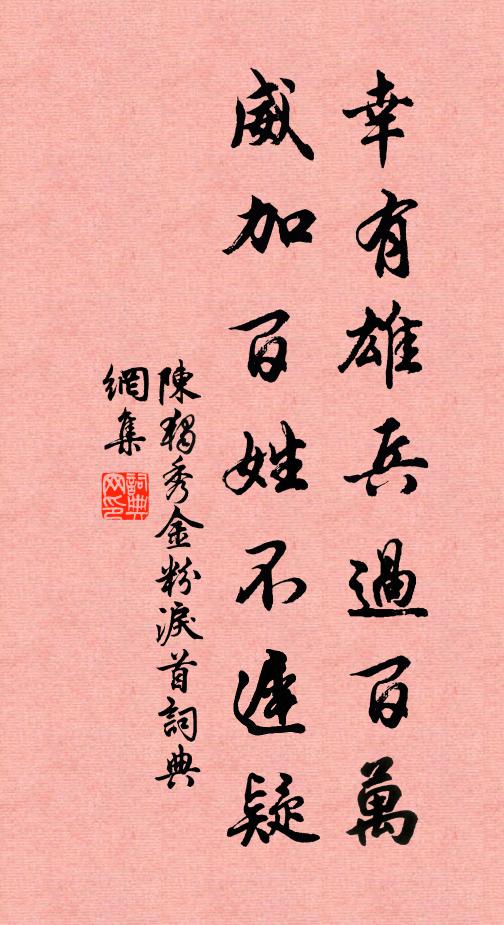 幸有雄兵過百萬
威加百姓不遲疑
陳獨秀金粉淚首詞典
網集
詞典網印